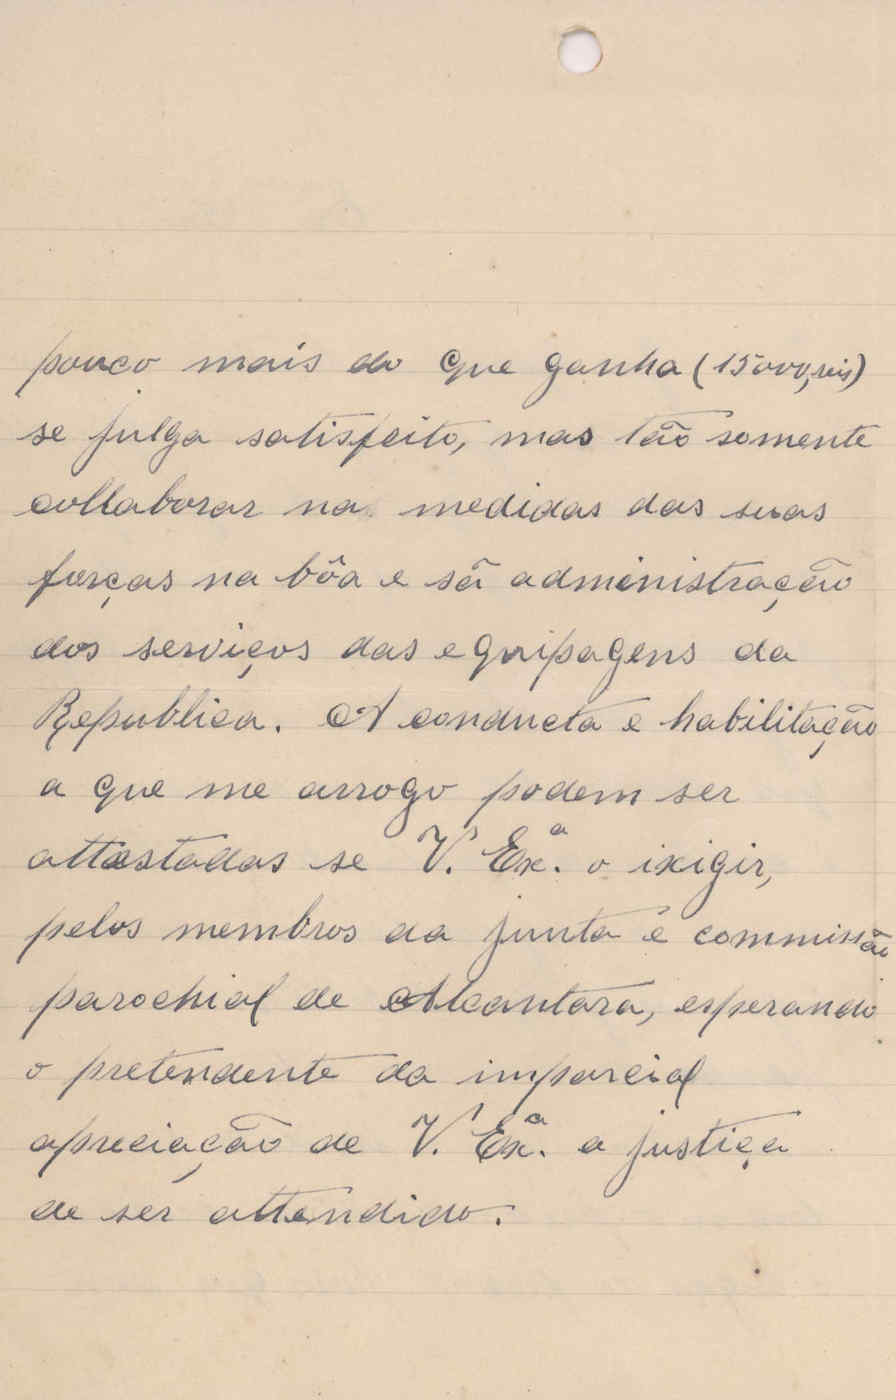 pouco mais do que ganha (15000, reis)
se julga satisfeito, mas tão somente
collaborar na medidas das suas
forças na bôa e sã administração
dos serviços das equipagens da
Republica. A conducta e habilitação
a que me arrogo podem ser
attestadas se V. Ex.ª o ixigir,
pelos membros da junta e commissão
parochial de Alcantara, esperando
o pretendente da imparcial
apreciação de V. Ex.ª a justiça
de ser attendido.